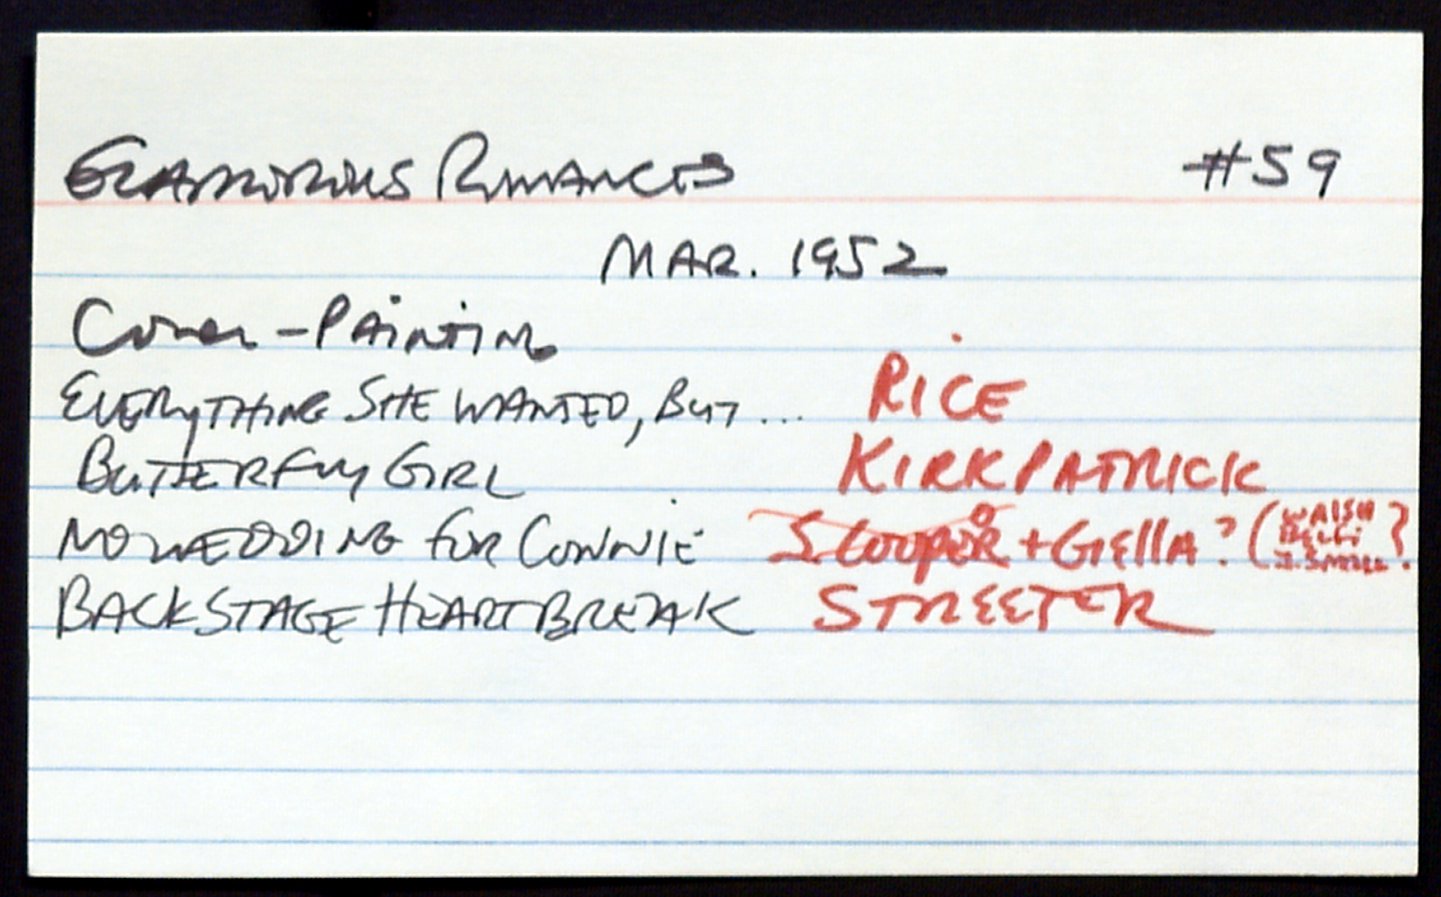 GLAMOROUS ROMANCES #59
MAR. 1952
COVER - PAINTING
EVERYTHING SHE WANTED, BUT... RICE
BUTTERFLY GIRL KIRKPATRICK
NO WEDDING FOR CONNIE S. COOPER + GIELLA? (WALSH
J. SMALL?
BACKSTAGE HEARTBREAK STREETER